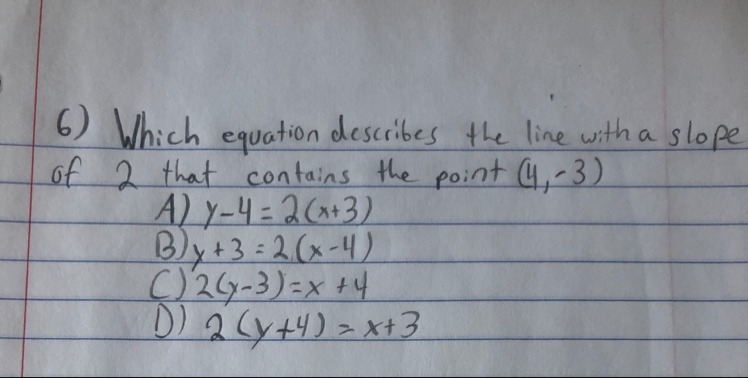 6) Which equation describes the line with a slope
of 2 that contains the point (4,-3)
A) y-4=2(x+3)
B) y+3=2(x-4)
C) 2(y-3)=x+4
D) 2(y+4)=x+3